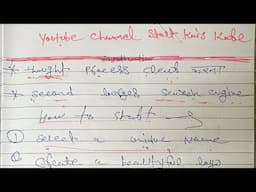 Youtube Channel Start Kais Kare
Introduction
* thought process clear करना
* second larges search engine
How to start
① select a unique Name
② Create a beautiful logo